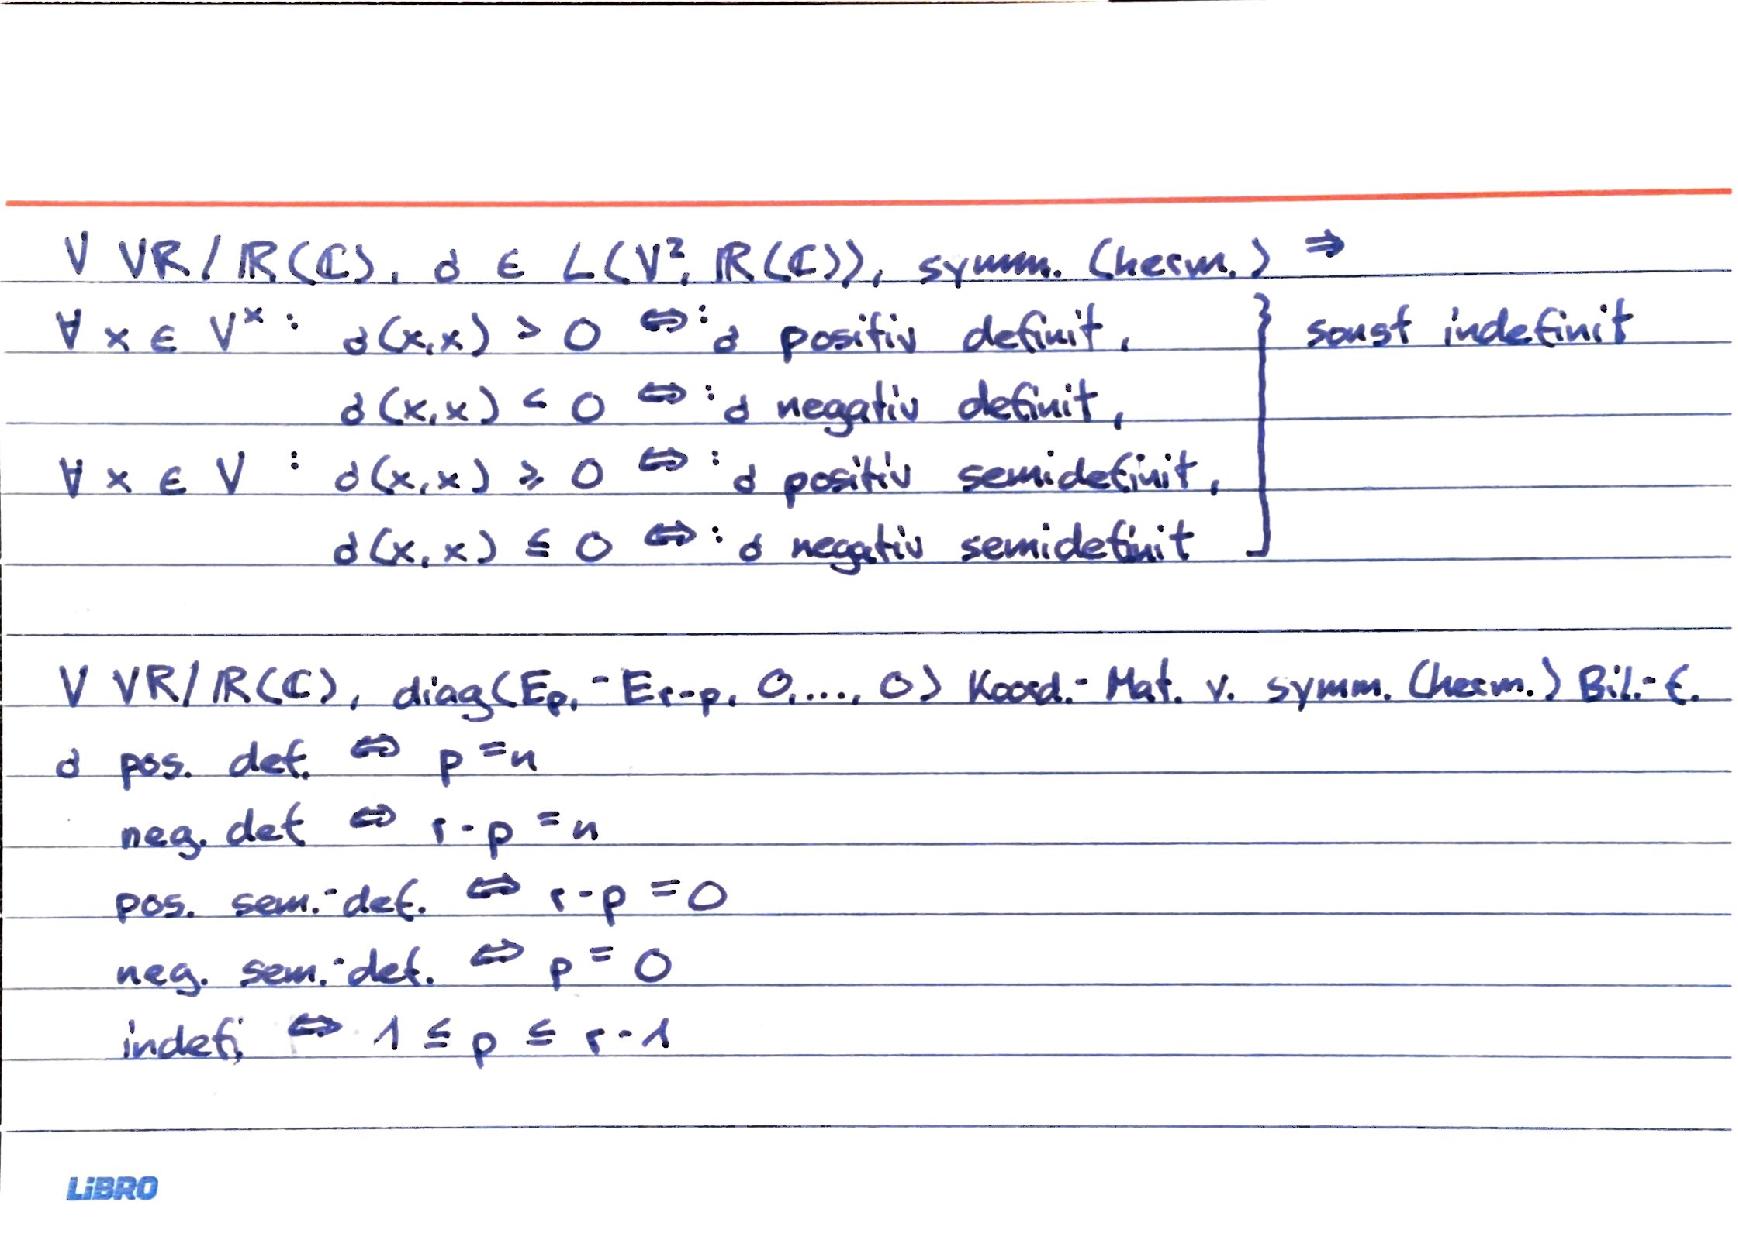 V VR/ℝ(ℂ), σ ∈ L(V², ℝ(ℂ)), symm. (herm.) ⇒
∀ x ∈ V^× : σ(x,x) > 0 ⇔: σ positiv definit, } sonst indefinit
σ(x,x) < 0 ⇔: σ negativ definit,
∀ x ∈ V : σ(x,x) ≥ 0 ⇔: σ positiv semidefinit,
σ(x,x) ≤ 0 ⇔: σ negativ semidefinit
V VR/ℝ(ℂ), diag(Eₚ, -Eᵣ₋ₚ, 0,..., 0) Koord.-Mat. v. symm. (herm.) Bil.-f.
σ pos. def. ⇔ p = n
neg. def ⇔ r-p = n
pos. sem.-def. ⇔ r-p = 0
neg. sem.-def. ⇔ p = 0
indef. ⇔ 1 ≤ p ≤ r-1
LiBRO